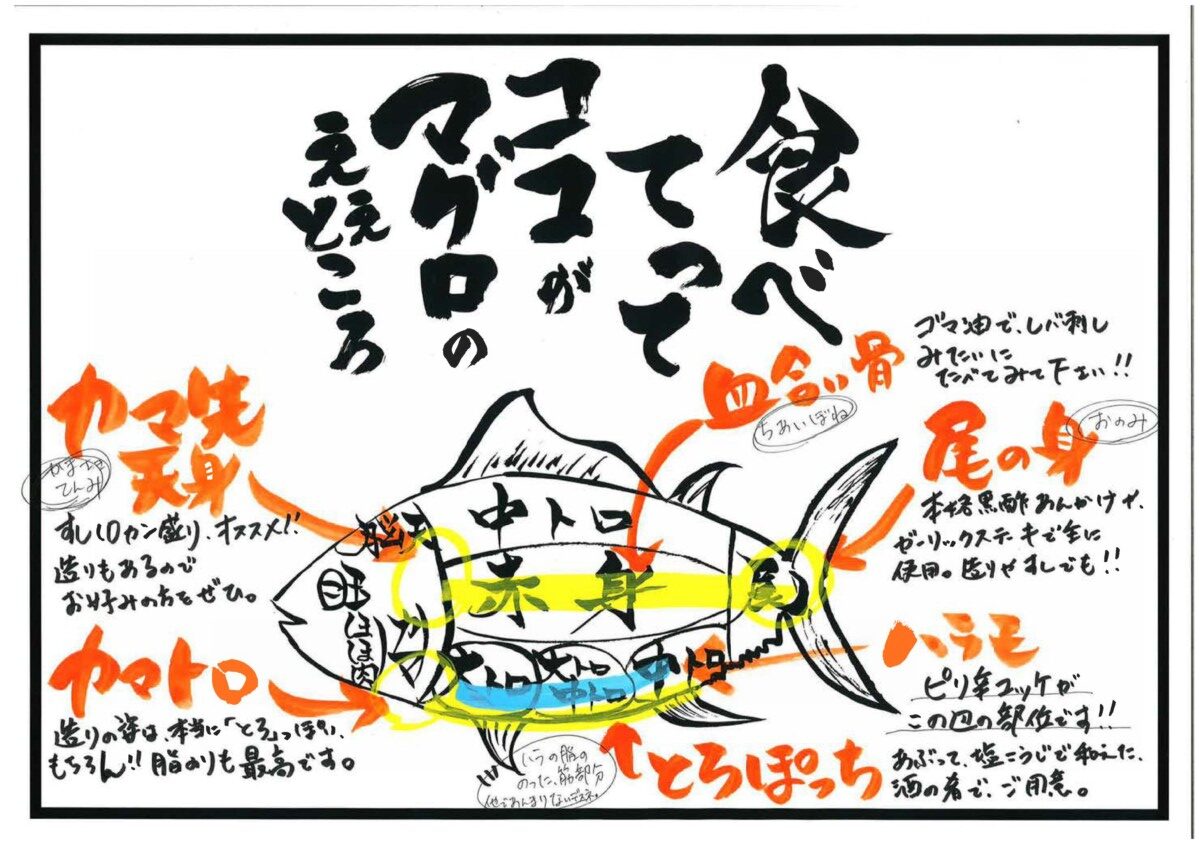 食べ
てって
ココが
マグロの
ええ
ところ
血合い骨
ちあいぼね
ゴマ油で、レバ刺し
みたいに
たべてみて下さい!!
尾の身
おのみ
本格黒酢あんかけや、
ガーリックステーキで主に
使用。造りやすしでも!!
ハラモ
ピリ辛ユッケが
この辺の部位です!!
あぶって、塩こうじで和えた、
酒の肴で、ご用意。
カマ先
天身
かまさき
てんみ
すし1カン盛り、オススメ!!
造りもあるので
お好みの方をぜひ。
カマトロ
造りの姿は、本当に「とろ」っぽい、
もちろん!!脂のりも最高です。
脳天
目
ほほ肉
カマ
中トロ
赤身
尾
大トロ
大トロ
中トロ
中トロ
とろぽっち
ハラの脂の
のった、筋部分